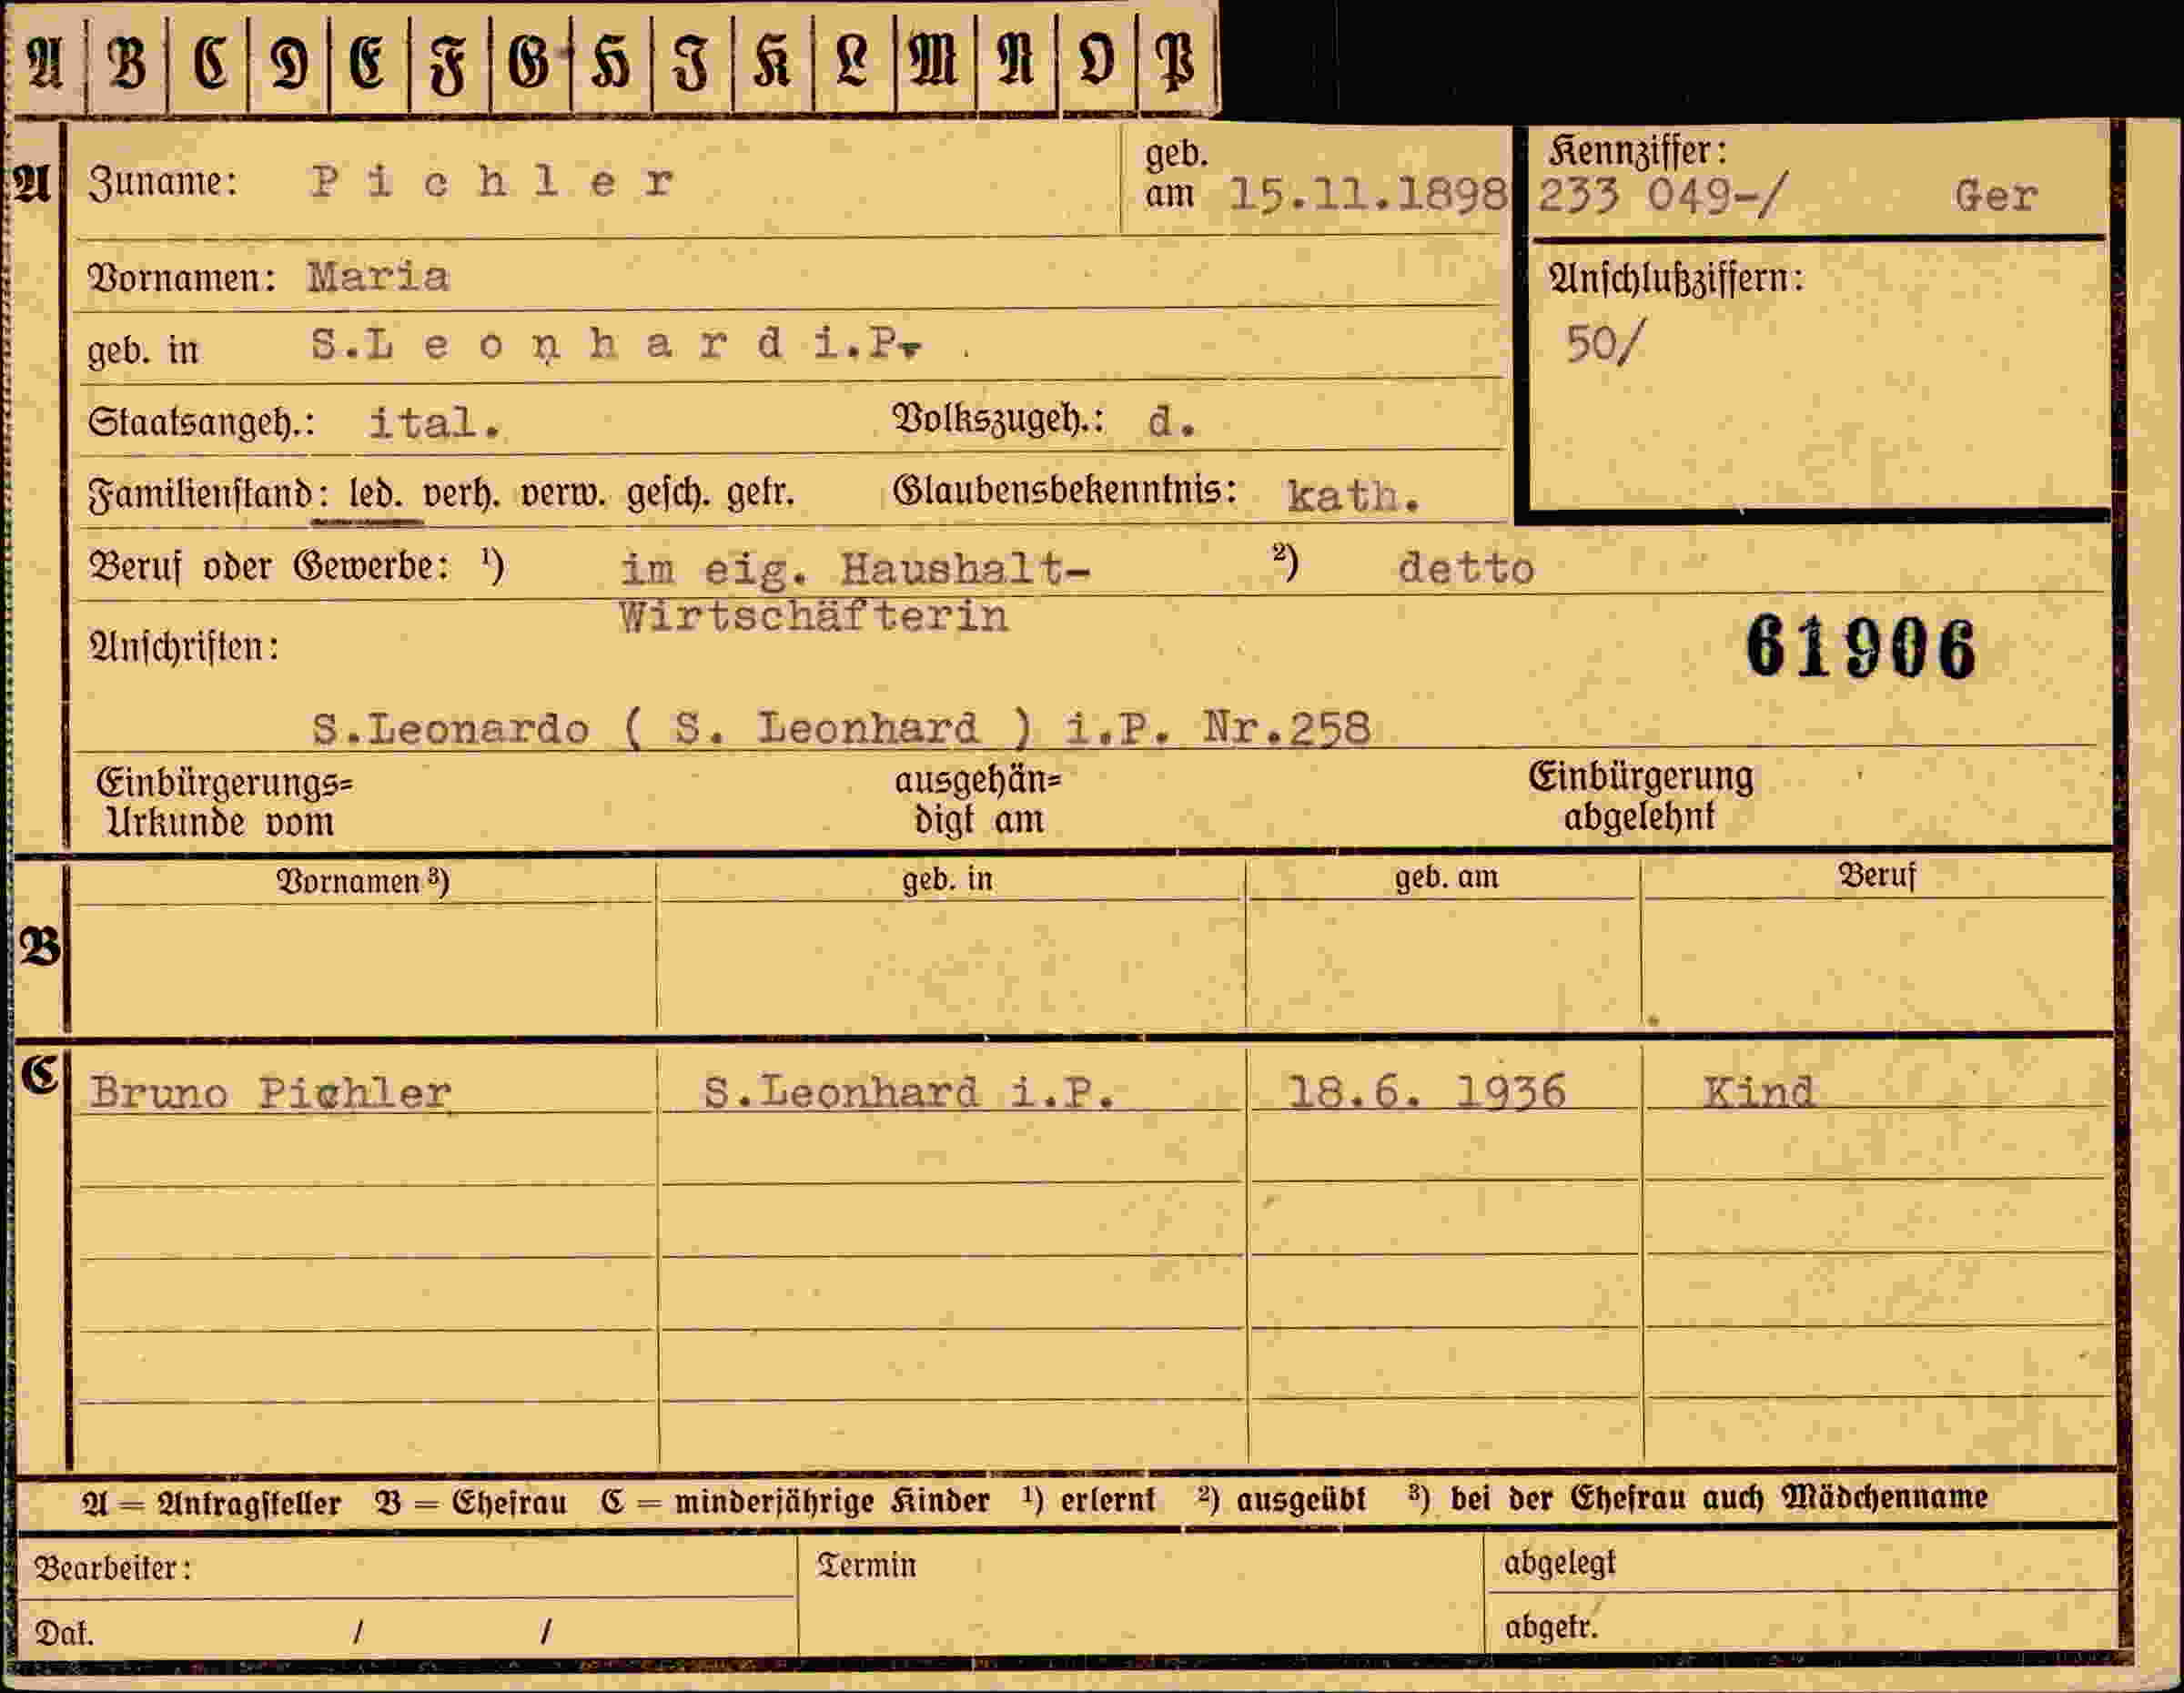 A B C D E F G H I K L M N O P
A Zuname: Pichler geb. am 15.11.1898 Kennziffer: 233 049-/ Ger
Vornamen: Maria Anschlußziffern:
geb. in S.Leonhard i.P. 50/
Staatsangeh.: ital. Volkszugeh.: d.
Familienstand: led. verh. verw. gesch. getr. Glaubensbekenntnis: kath.
Beruf oder Gewerbe: ¹) im eig. Haushalt- ²) detto
Wirtschäfterin
Anschriften: 61906
S.Leonardo ( S. Leonhard ) i.P. Nr.258
Einbürgerungs= ausgehän= Einbürgerung
Urkunde vom digt am abgelehnt
Vornamen ³) geb. in geb. am Beruf
B
C Bruno Pichler S.Leonhard i.P. 18.6. 1936 Kind
A = Antragsteller B = Ehefrau C = minderjährige Kinder ¹) erlernt ²) ausgeübt ³) bei der Ehefrau auch Mädchenname
Bearbeiter: Termin abgelegt
Dat. / / abgetr.